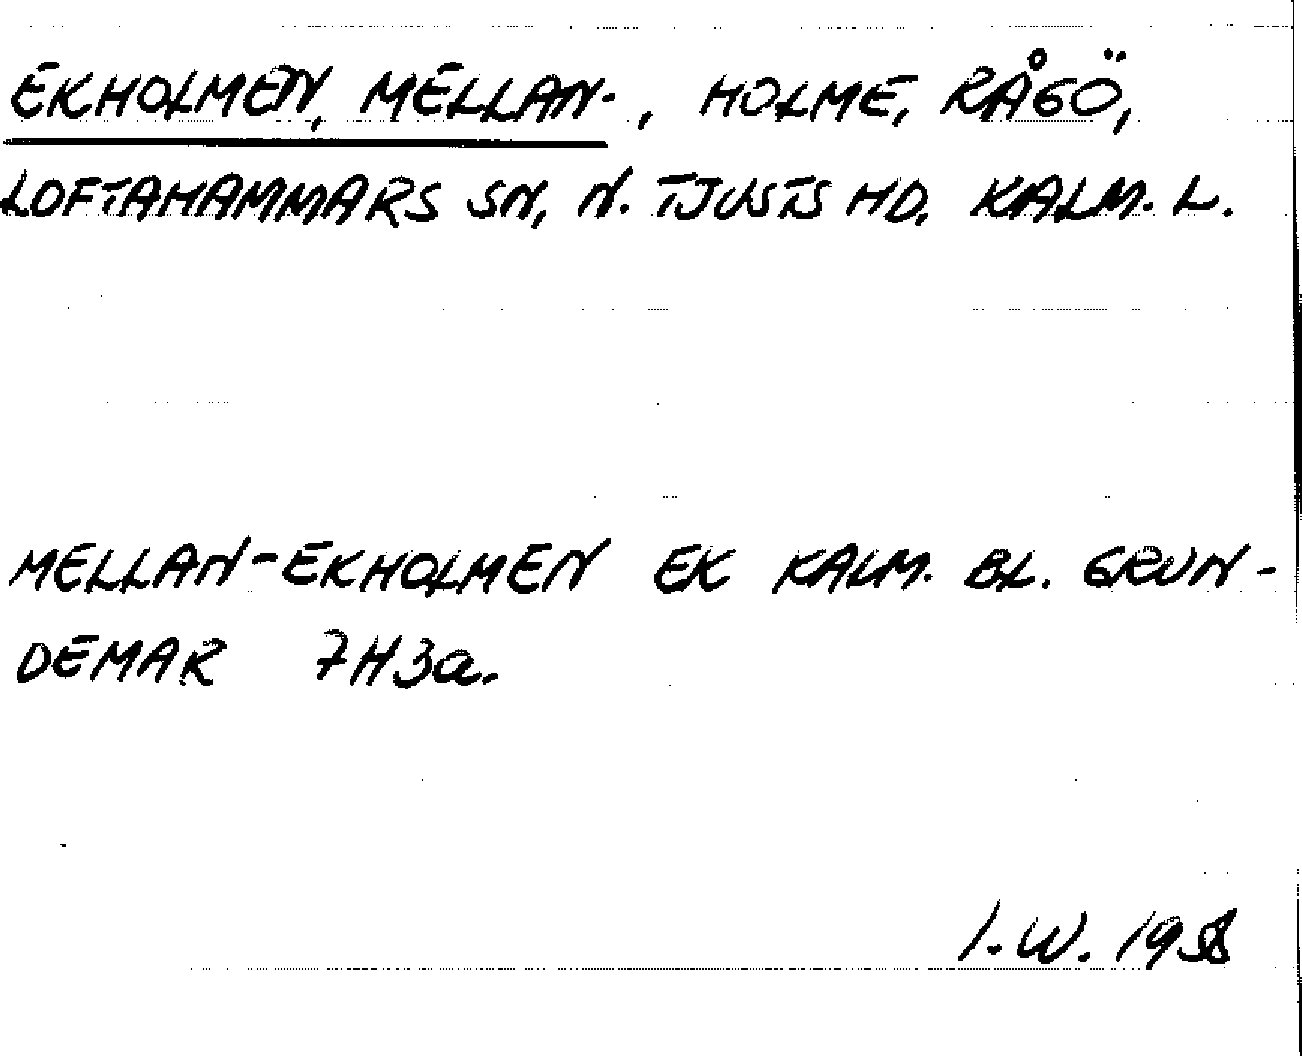 EKHOLMEN, MELLAN-, HOLME, RÅGÖ,
LOFTAHAMMARS SN, N. TJUSTS HD, KALM. L.
MELLAN-EKHOLMEN EK KALM. BL. GRUN-
DEMAR 7H3a.
I.W. 1958